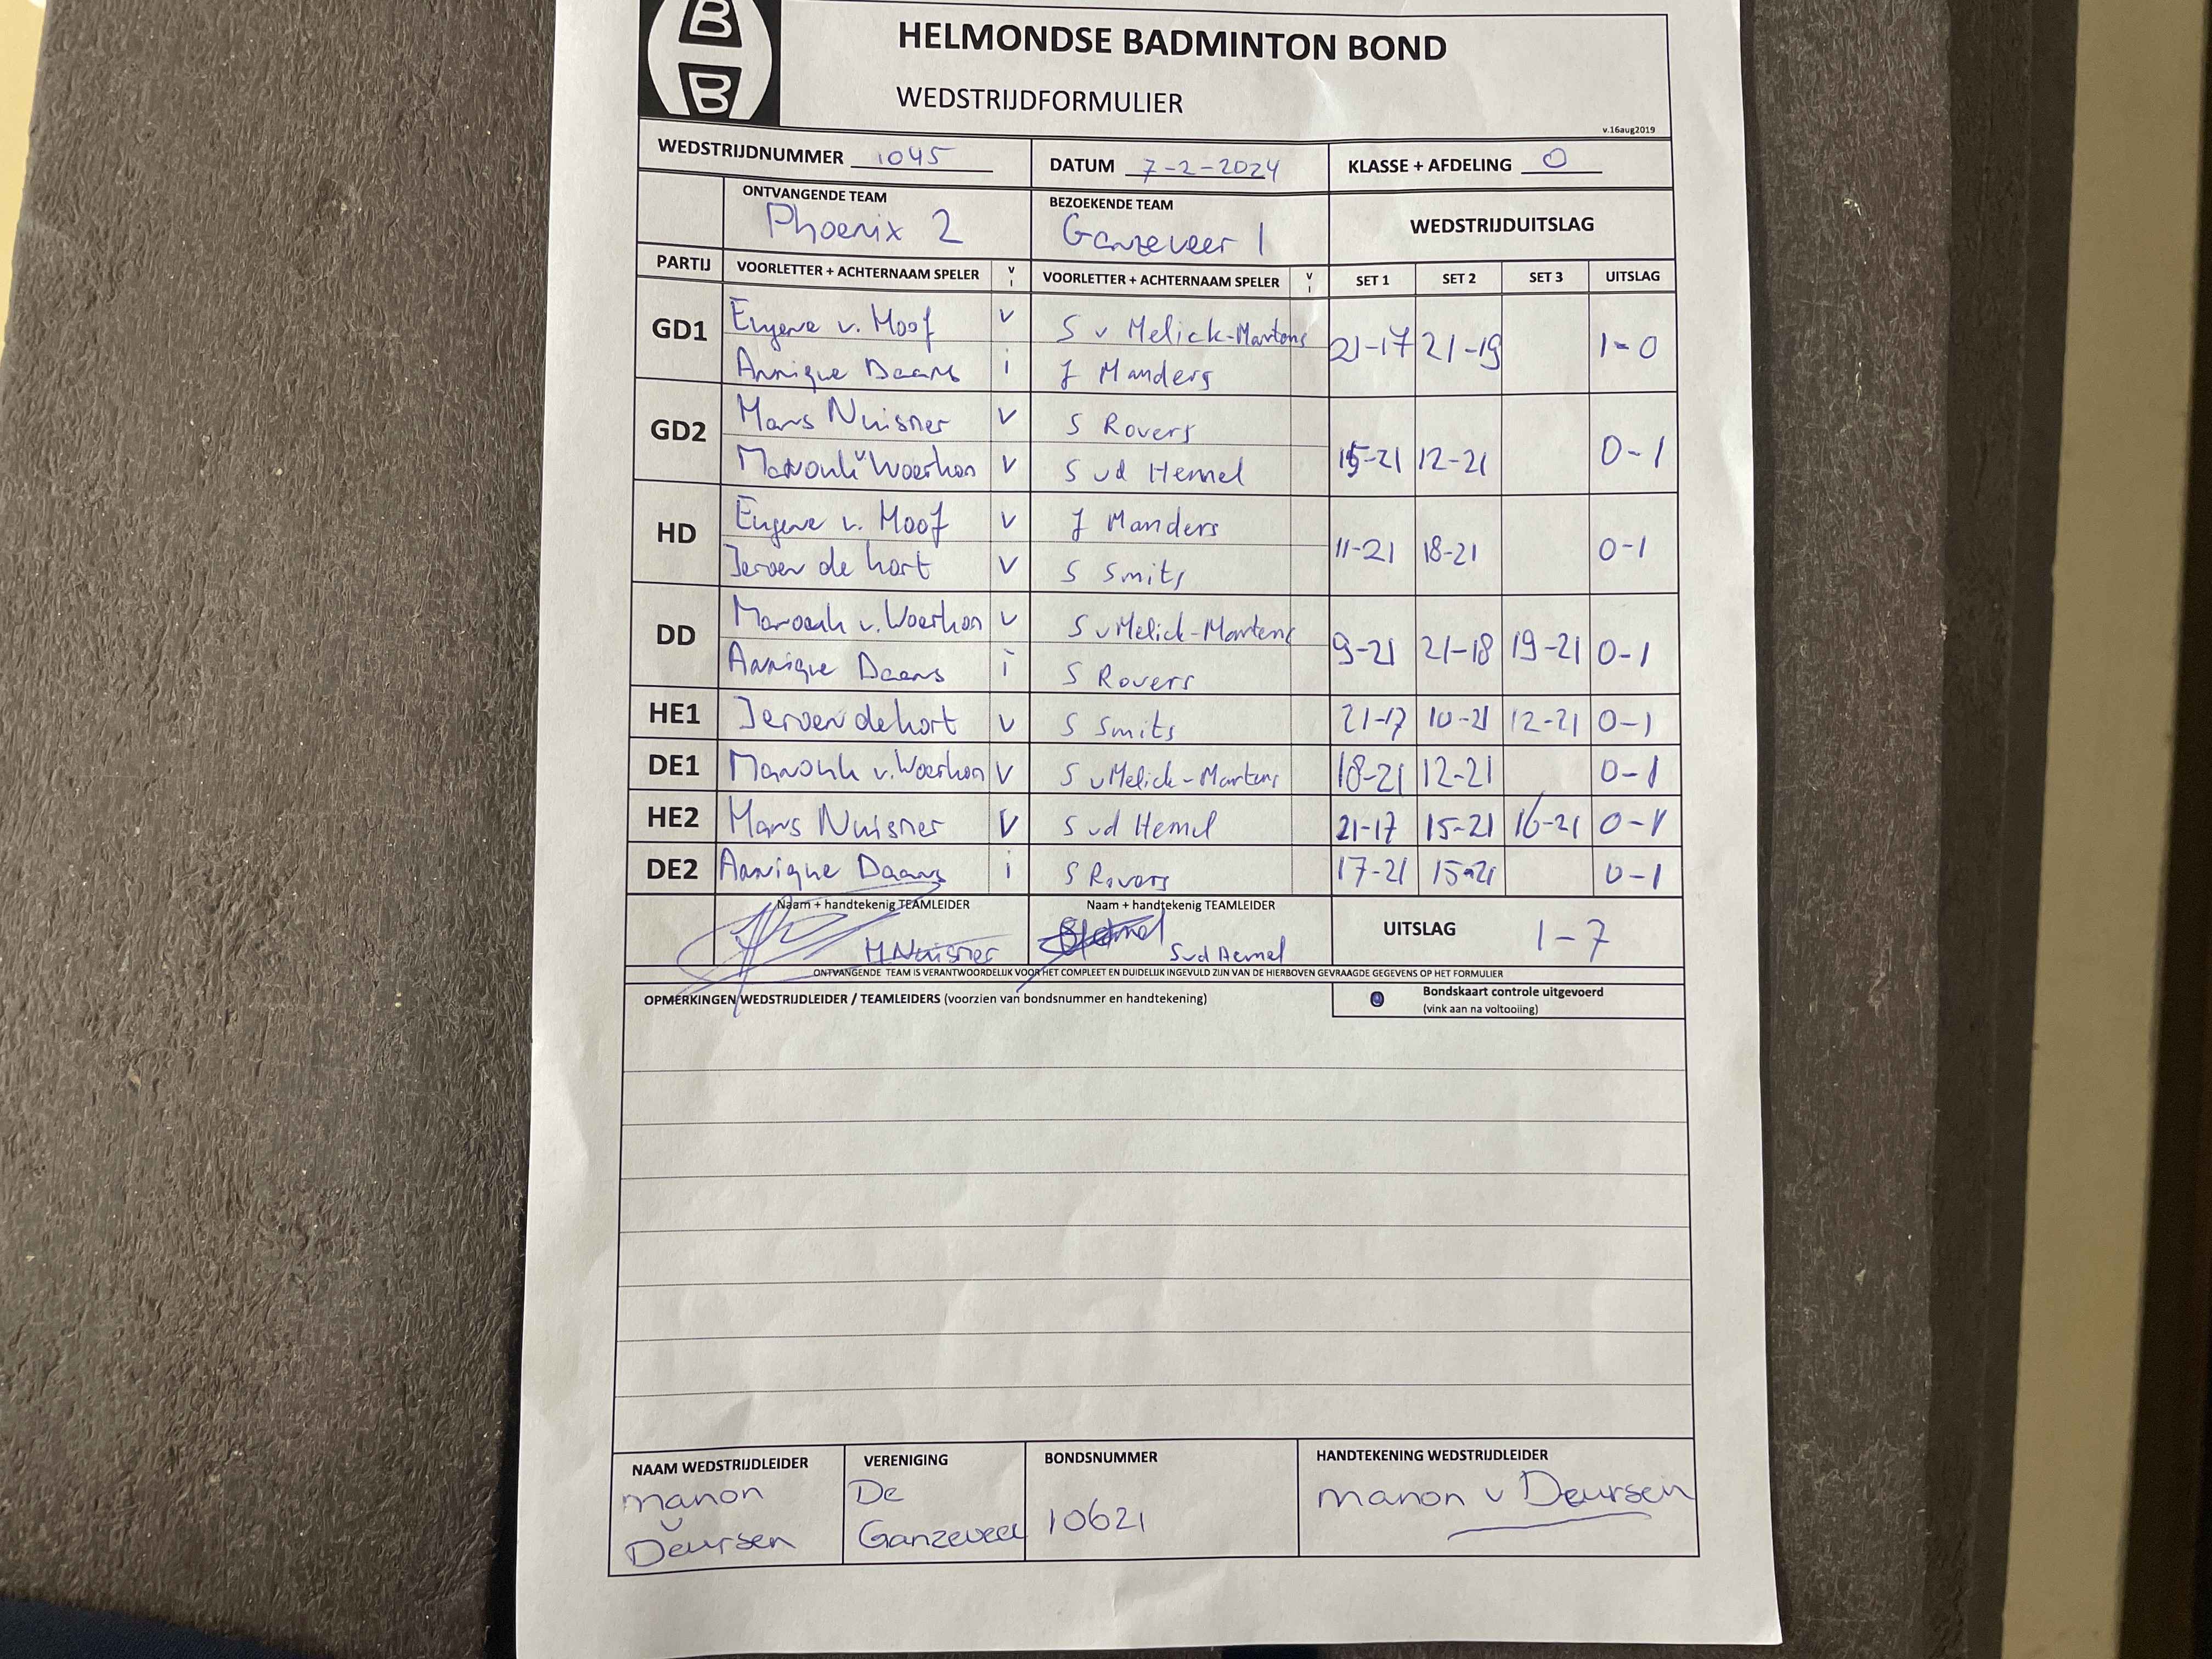 B
B
HELMONDSE BADMINTON BOND
WEDSTRIJDFORMULIER
v.16aug2019
WEDSTRIJDNUMMER 1045 DATUM 7-2-2024 KLASSE + AFDELING O
ONTVANGENDE TEAM BEZOEKENDE TEAM WEDSTRIJDUITSLAG
Phoenix 2 Ganzeveer 1
PARTIJ VOORLETTER + ACHTERNAAM SPELER V I VOORLETTER + ACHTERNAAM SPELER V I SET 1 SET 2 SET 3 UITSLAG
GD1 Eugene v. Hoof v S v Melick-Martens 21-17 21-19 1-0
Annique Daans i J Manders
GD2 Hans Nuisner v S Rovers 15-21 12-21 0-1
v Woerkon v S vd Hemel
HD Eugene v. Hoof v J Manders 11-21 18-21 0-1
Jeroen de hort v S Smits
DD v. Woerkon v S v Melick-Martens 9-21 21-18 19-21 0-1
Annique Daans i S Rovers
HE1 Jeroen de hort v S Smits 21-17 10-21 12-21 0-1
DE1 v. Woerkon v S v Melick-Martens 18-21 12-21 0-1
HE2 Hans Nuisner V S vd Hemel 21-17 15-21 16-21 0-1
DE2 Annique Daans i S Rovers 17-21 15-21 0-1
Naam + handtekenig TEAMLEIDER Naam + handtekenig TEAMLEIDER UITSLAG 1-7
H Nuisner S vd Hemel
ONTVANGENDE TEAM IS VERANTWOORDELIJK VOOR HET COMPLEET EN DUIDELIJK INGEVULD ZIJN VAN DE HIERBOVEN GEVRAAGDE GEGEVENS OP HET FORMULIER
OPMERKINGEN WEDSTRIJDLEIDER / TEAMLEIDERS (voorzien van bondsnummer en handtekening) Bondskaart controle uitgevoerd
(vink aan na voltooiing)
NAAM WEDSTRIJDLEIDER VERENIGING BONDSNUMMER HANDTEKENING WEDSTRIJDLEIDER
manon v Deursen De Ganzeveer 10621 manon v Deursen